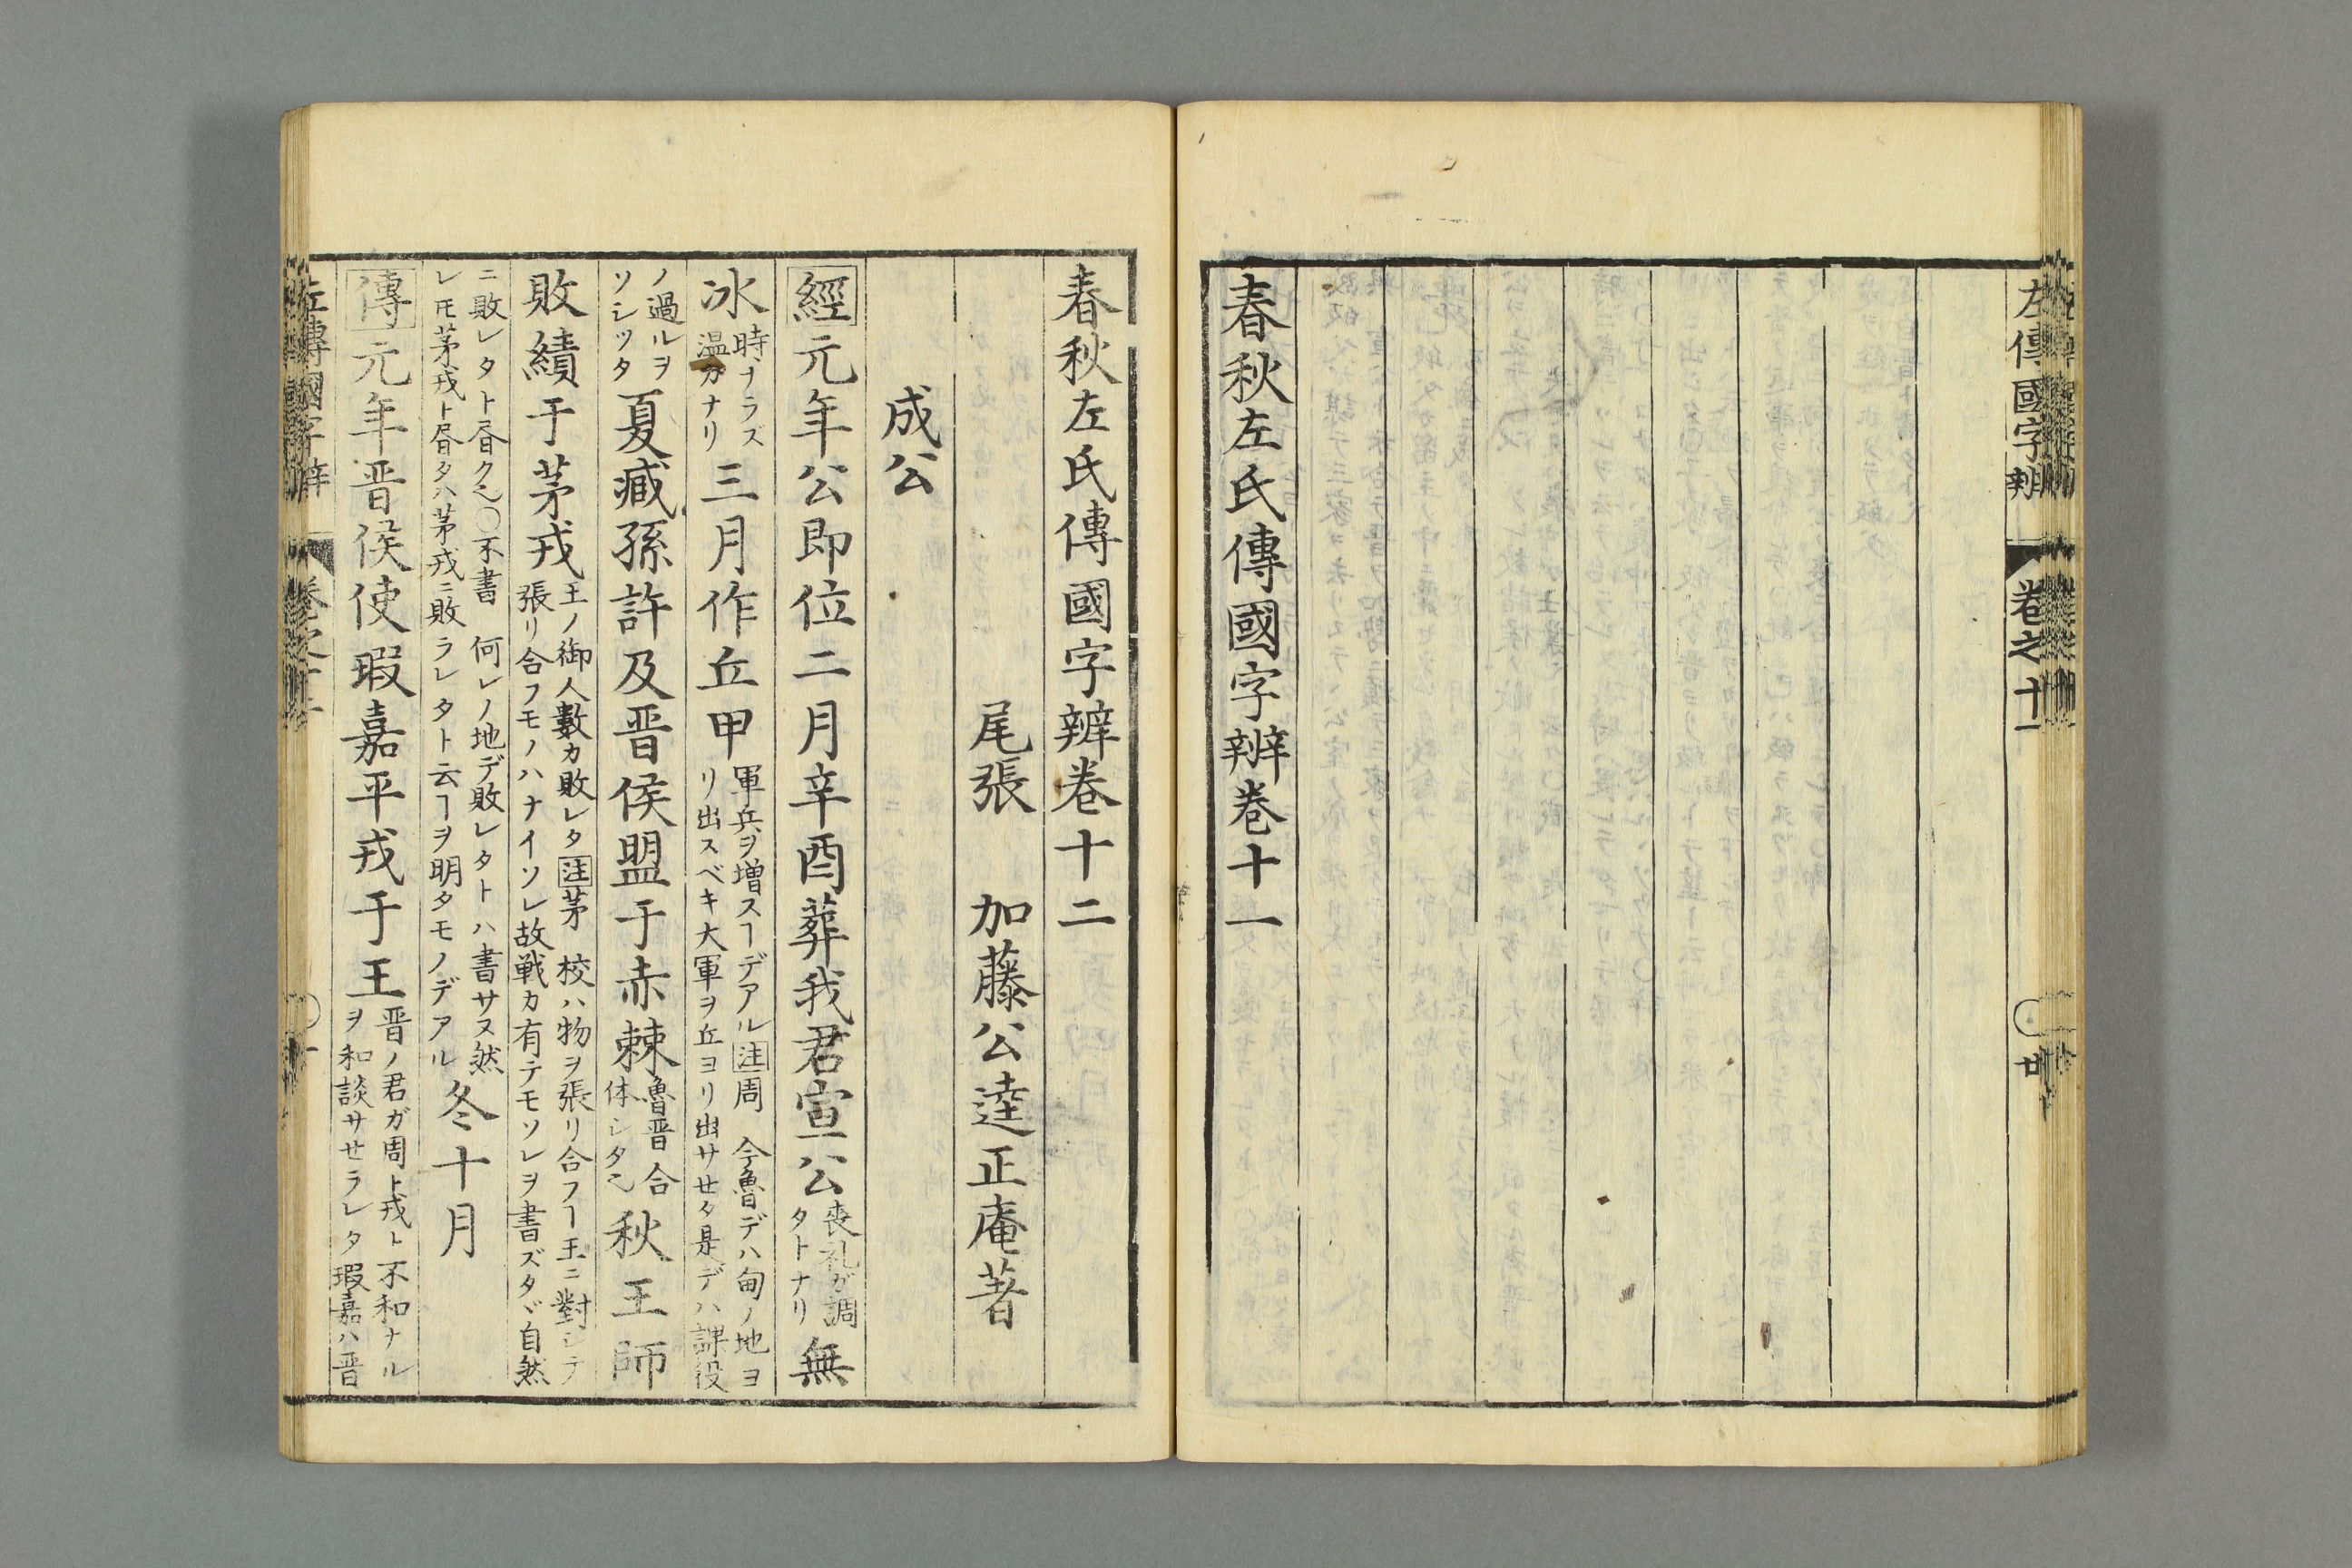 左傳國字辨 卷之十一 廿
春秋左氏傳國字辨卷十一
春秋左氏傳國字辨卷十二
尾張 加藤公逵正庵著
成公
經元年公即位二月辛酉葬我君宣公喪礼ガ調タトナリ無
冰時ナラズ温カナリ三月作丘甲軍兵ヲ増スヿデアル注周 今魯デハ甸ノ地ヨリ出スベキ大軍ヲ丘ヨリ出サセタ是デハ課役
ノ過ルヲソシツタ夏臧孫許及晋侯盟于赤棘魯晋合体シタ也秋王師
敗績于茅戎王ノ御人數カ敗レタ注茅 校ハ物ヲ張リ合フヿ王ニ對シテ張リ合フモノハナイソレ故戦カ有テモソレヲ書ズタヾ自然
ニ敗レタト昏ク也〇不書 何レノ地デ敗レタトハ書サヌ然レモ茅戎ト昏タハ茅戎ニ敗ラレタト云ヿヲ明タモノデアル冬十月
傳元年晋侯使瑕嘉平戎于王晋ノ君ガ周ト戎ト不和ナルヲ和談サセラレタ瑕嘉ハ晋
左傳國字辨